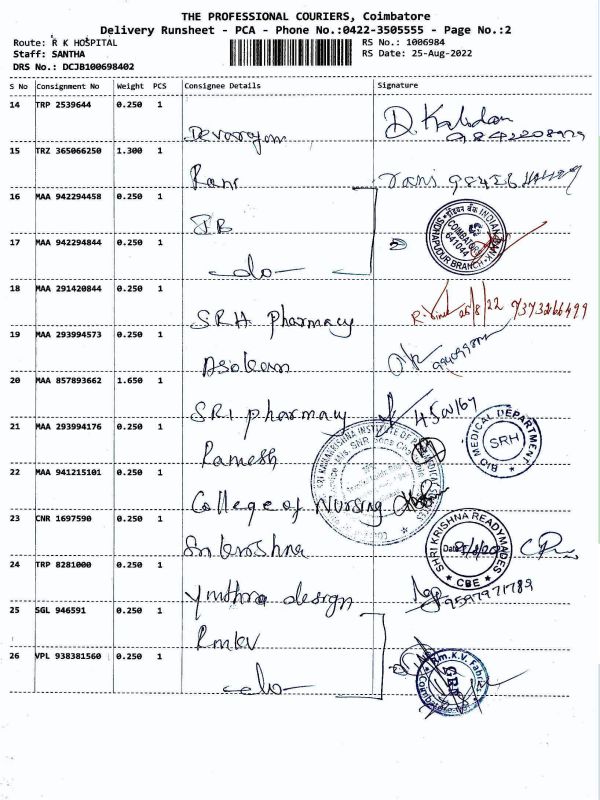 THE PROFESSIONAL COURIERS, Coimbatore
Delivery Runsheet - PCA - Phone No.:0422-3505555 - Page No.:2
Route: R K HOSPITAL
RS No.: 1006984
Staff: SANTHA
RS Date: 25-Aug-2022
DRS No.: DCJB100698402
S No Consignment No Weight PCS Consignee Details Signature
14 TRP 2539644 0.250 1
Devarajan
15 TRZ 365066250 1.300 1
Rani rani
16 MAA 942294458 0.250 1
IB
INDIAN BANK
COIMBATORE
641044
SIDHAPUDUR BRANCH
17 MAA 942294844 0.250 1
-do-
18 MAA 291420844 0.250 1
SRH pharmacy 25/8/22 9373266499
19 MAA 293994573 0.250 1
Asokan
20 MAA 857893662 1.650 1
SRI pharmacy
BIO MEDICAL DEPARTMENT
SRH
21 MAA 293994176 0.250 1
Ramesh
22 MAA 941215101 0.250 1
College of Nursing
23 CNR 1697590 0.250 1
Sri krishna
SHRI KRISHNA READYMADES
Date
CBE
24 TRP 8281000 0.250 1
ymthra design 9597971789
25 SGL 946591 0.250 1
Rmkv
26 VPL 938381560 0.250 1
-do-
GRN